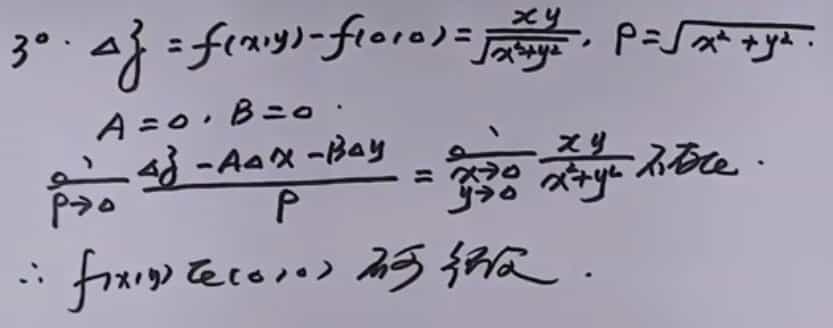 3°. Δz = f(x,y) - f(0,0) = xy/√(x²+y²), ρ = √(x²+y²).
A = 0, B = 0.
lim ρ→0 (Δz - AΔx - BΔy)/ρ = lim x→0 y→0 xy/(x²+y²) 不存在.
∴ f(x,y)在(0,0)不可微.